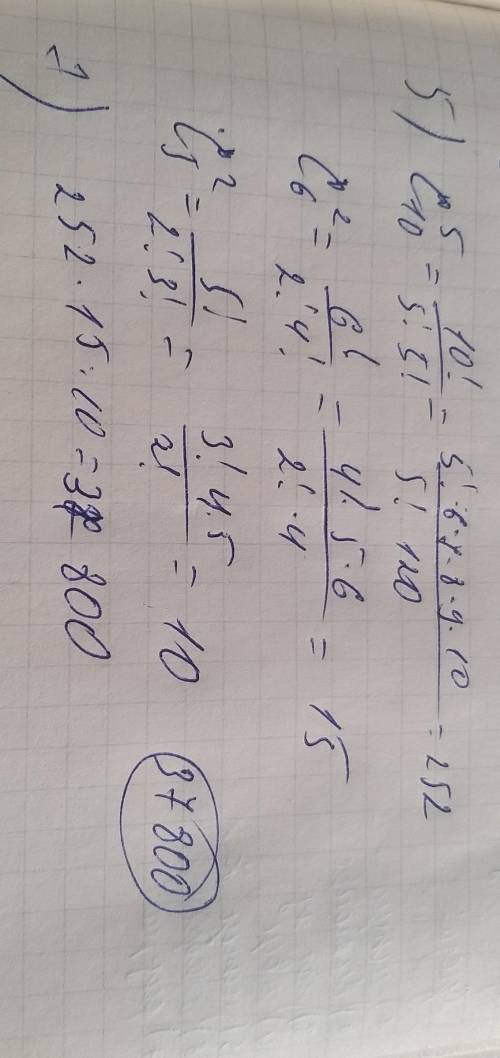 5) C₁₀⁵ = 10! / 5! 5! = 5! · 6 · 7 · 8 · 9 · 10 / 5! 120 = 252
C₆² = 6! / 2! 4! = 4! · 5 · 6 / 2! · 4 = 15
C₅² = 5! / 2! 3! = 3! 4 · 5 / 2! = 10
37 800
7) 252 · 15 · 10 = 37 800